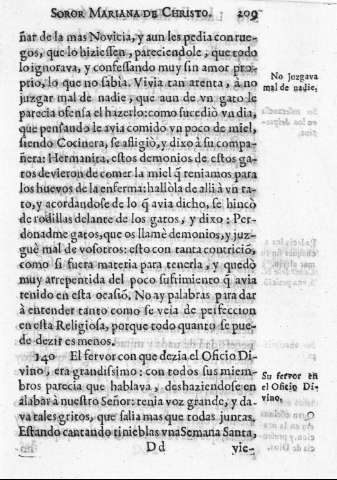 SOROR MARIANA DE CHRISTO. 209
ñar de la mas Novicia, y aun les pedia con rue-
gos, que lo hiziessen, pareciendole, que todo
lo ignorava, y confessando muy sin amor pro-
prio, lo que no sabia. Vivia tan atenta, à no
juzgar mal de nadie, que aun de vn gato le
parecia ofensa el hazerlo: como sucediò vn dia,
que pensando le avia comido vn poco de miel,
siendo Cocinera, se afligiò, y dixo à su compa-
ñera: Hermanita, estos demonios de estos ga-
tos devieron de comer la miel q̃ teniamos para
los huevos de la enferma: hallòla de alli à vn ra-
to, y acordandose de lo q̃ avia dicho, se hincò
de rodillas delante de los gatos, y dixo: Per-
donadme gatos, que os llamè demonios, y juz-
guè mal de vosotros: esto con tanta contriciõ,
como si fuera materia para tenerla, y quedò
muy arrepentida del poco sufrimiento q̃ avia
tenido en esta ocasiõ. No ay palabras para dar
à entender tanto como se veia de perfeccion
en esta Religiosa, porque todo quanto se pue-
de dezir es menos.
140 El fervor con que dezia el Oficio Di-
vino, era grandissimo: con todos sus miem-
bros parecia que hablava, deshaziendose en
alabar à nuestro Señor: tenia voz grande, y da-
va tales gritos, que salia mas que todas juntas.
Estando cantando tinieblas vna Semana Santa,
Dd vie-
No Juzgava
mal de nadie.
Su fervor en
el Oficio Di-
vino.